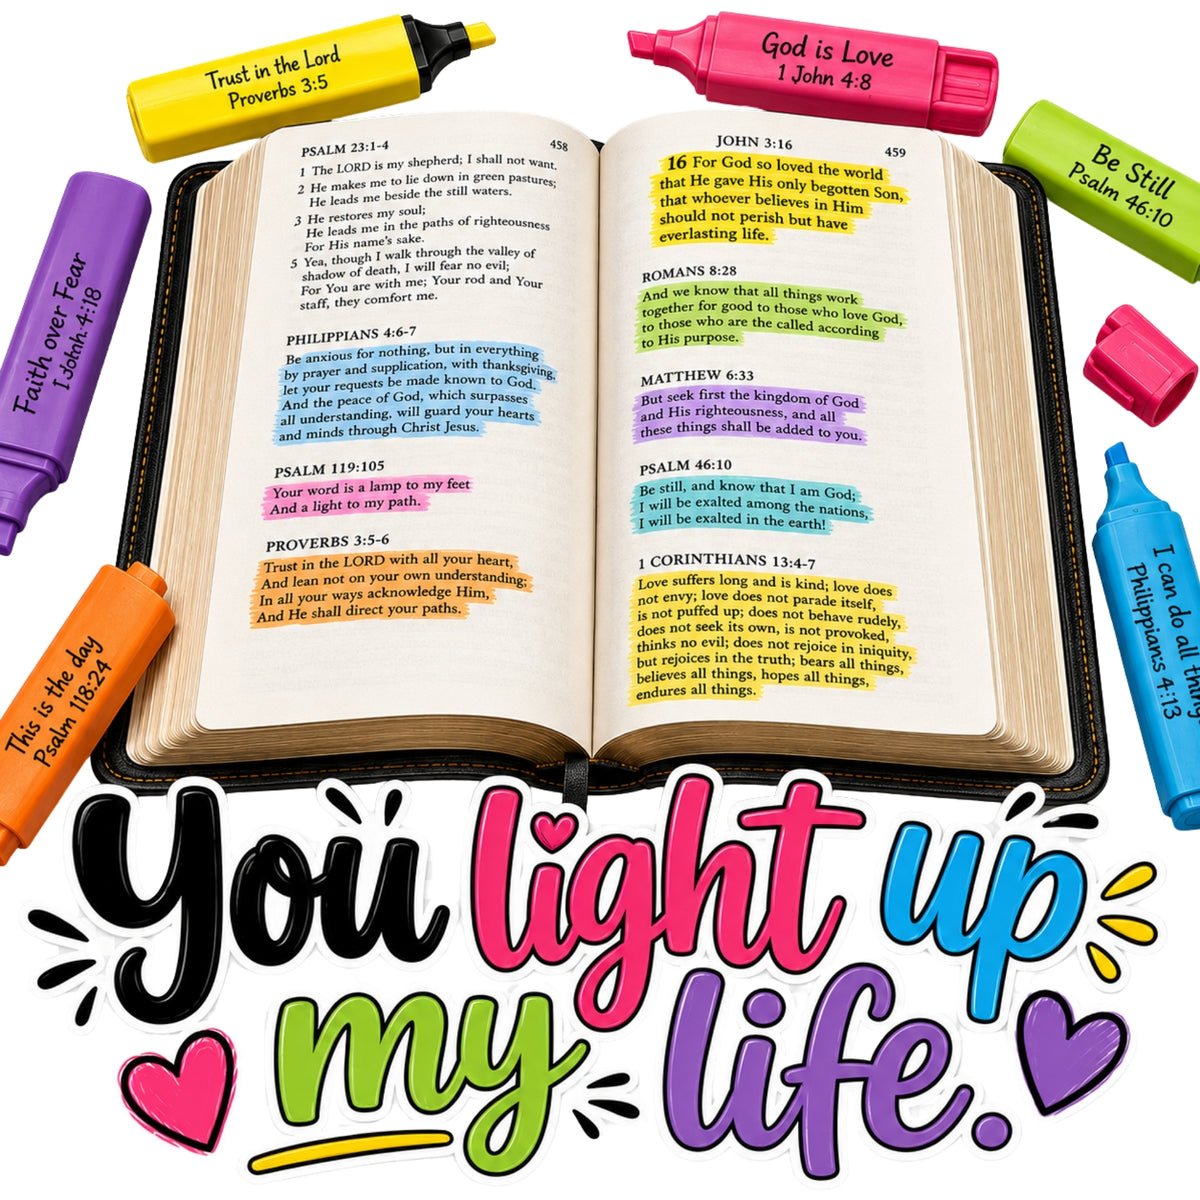 Trust in the Lord
Proverbs 3:5
God is Love
1 John 4:8
Be Still
Psalm 46:10
Faith over Fear
I Jotnh. 4:18
This is the day
Psalm 118:24
I can do all thing
Philippians 4:13
PSALM 23:1-4
458
1 The LORD is my shepherd; I shall not want.
2 He makes me to lie down in green pastures;
He leads me beside the still waters.
3 He restores my soul;
He leads me in the paths of righteousness
For His name's sake.
5 Yea, though I walk through the valley of
shadow of death, I will fear no evil;
For You are with me; Your rod and Your
staff, they comfort me.
PHILIPPIANS 4:6-7
Be anxious for nothing, but in everything
by prayer and supplication, with thanksgiving,
let your requests be made known to God.
And the peace of God, which surpasses
all understanding, will guard your hearts
and minds through Christ Jesus.
PSALM 119:105
Your word is a lamp to my feet
And a light to my path.
PROVERBS 3:5-6
Trust in the LORD with all your heart,
And lean not on your own understanding;
In all your ways acknowledge Him,
And He shall direct your paths.
JOHN 3:16
459
16 For God so loved the world
that He gave His only begotten Son,
that whoever believes in Him
should not perish but have
everlasting life.
ROMANS 8:28
And we know that all things work
together for good to those who love God,
to those who are the called according
to His purpose.
MATTHEW 6:33
But seek first the kingdom of God
and His righteousness, and all
these things shall be added to you.
PSALM 46:10
Be still, and know that I am God;
I will be exalted among the nations,
I will be exalted in the earth!
1 CORINTHIANS 13:4-7
Love suffers long and is kind; love does
not envy; love does not parade itself,
is not puffed up; does not behave rudely,
does not seek its own, is not provoked,
thinks no evil; does not rejoice in iniquity,
but rejoices in the truth; bears all things,
believes all things, hopes all things,
endures all things.
You light up
my life.